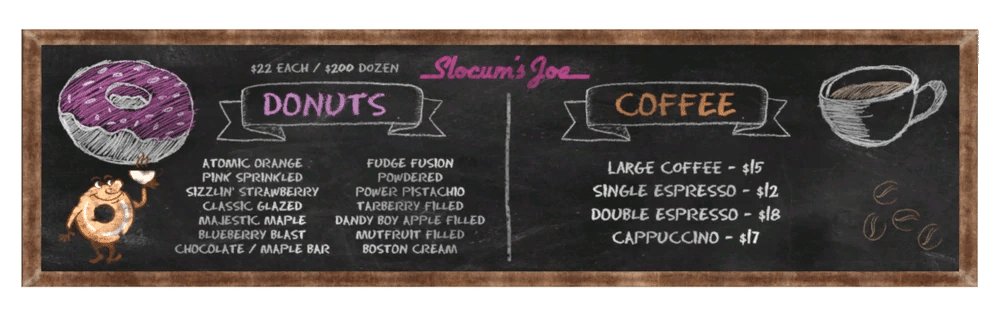 $22 EACH / $200 DOZEN
Slocum's Joe
DONUTS
ATOMIC ORANGE
PINK SPRINKLED
SIZZLIN' STRAWBERRY
CLASSIC GLAZED
MAJESTIC MAPLE
BLUEBERRY BLAST
CHOCOLATE / MAPLE BAR
FUDGE FUSION
POWDERED
POWER PISTACHIO
TARBERRY FILLED
DANDY BOY APPLE FILLED
MUTFRUIT FILLED
BOSTON CREAM
COFFEE
LARGE COFFEE - $15
SINGLE ESPRESSO - $12
DOUBLE ESPRESSO - $18
CAPPUCCINO - $17